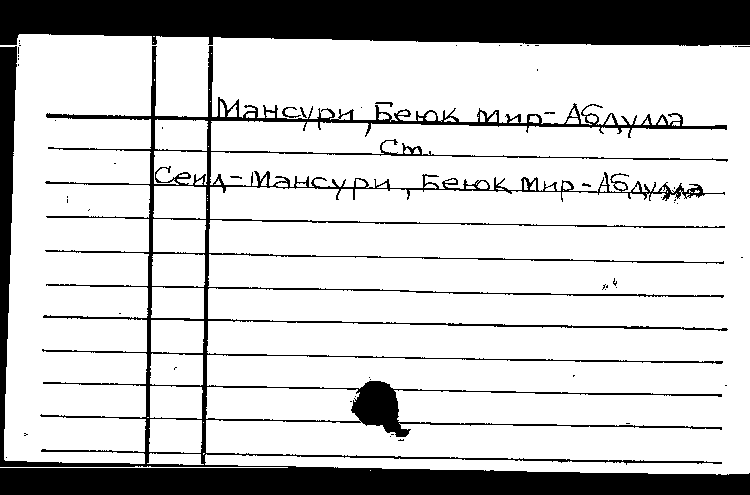 Мансури, Беюк Мир-Абдулла
ст.
Сеид-Мансури, Беюк Мир-Абдулла